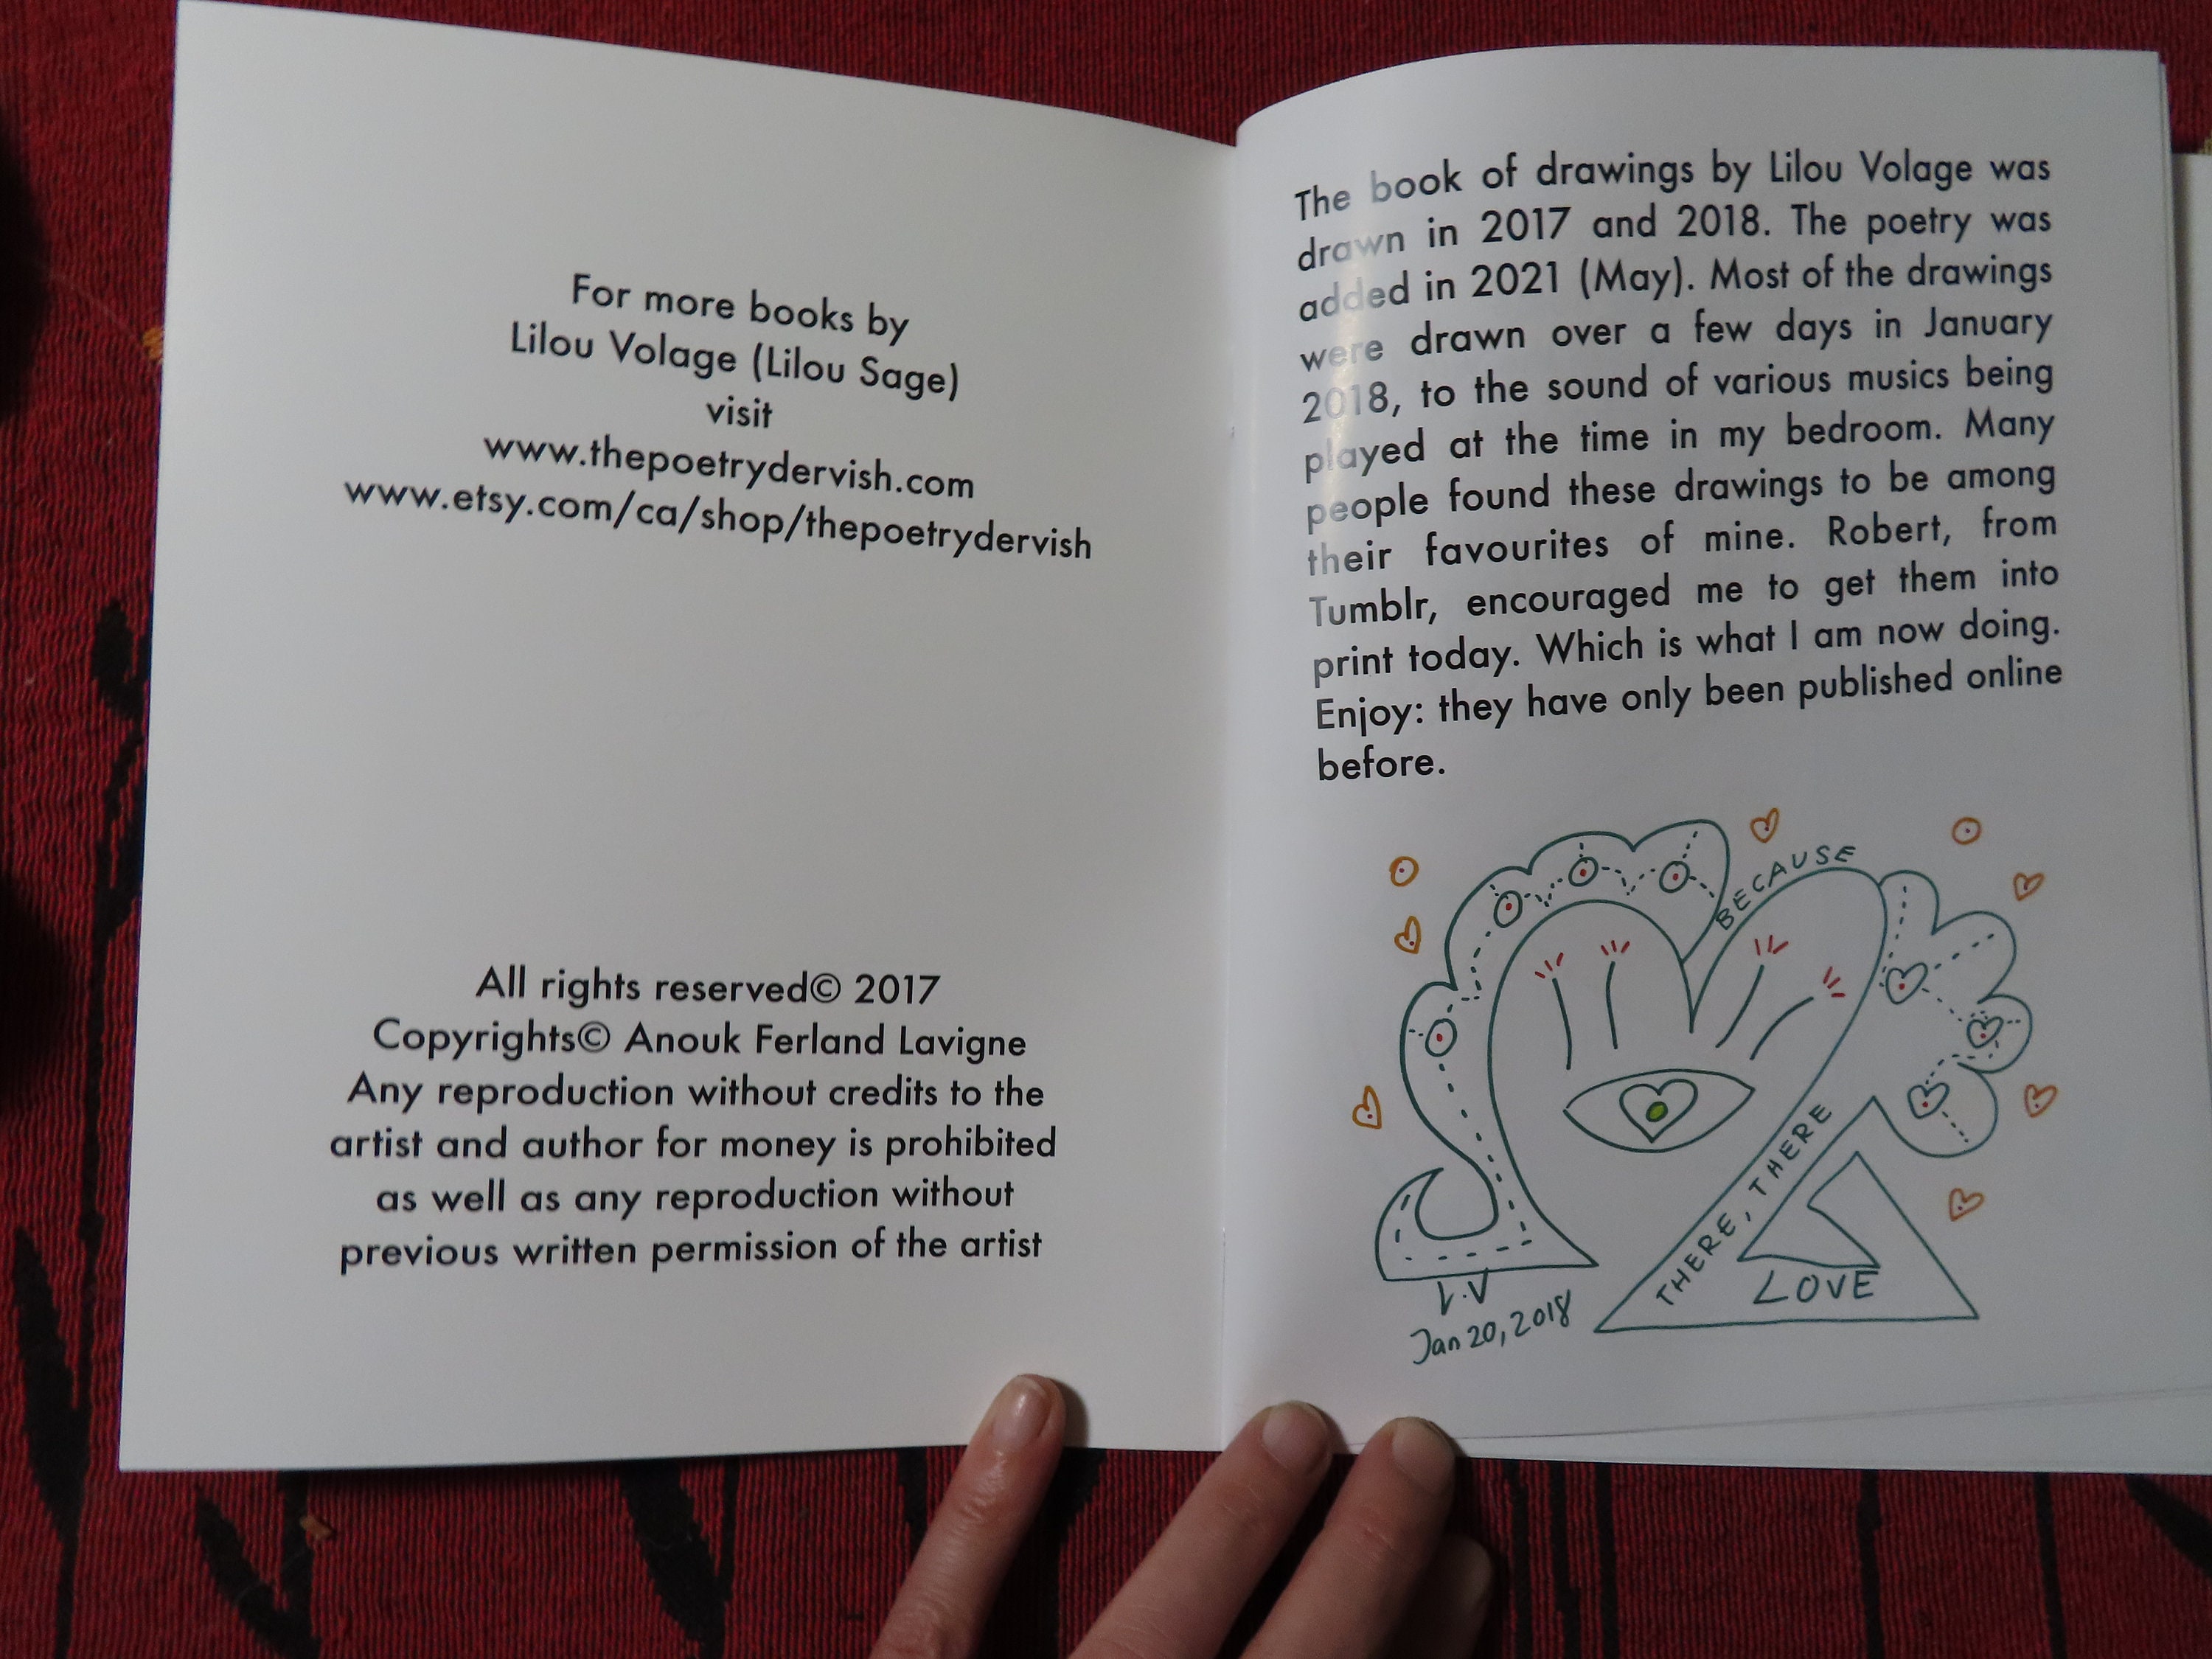 For more books by
Lilou Volage (Lilou Sage)
visit
www.thepoetrydervish.com
www.etsy.com/ca/shop/thepoetrydervish
All rights reserved© 2017
Copyrights© Anouk Ferland Lavigne
Any reproduction without credits to the
artist and author for money is prohibited
as well as any reproduction without
previous written permission of the artist
The book of drawings by Lilou Volage was
drawn in 2017 and 2018. The poetry was
added in 2021 (May). Most of the drawings
were drawn over a few days in January
2018, to the sound of various musics being
played at the time in my bedroom. Many
people found these drawings to be among
their favourites of mine. Robert, from
Tumblr, encouraged me to get them into
print today. Which is what I am now doing.
Enjoy: they have only been published online
before.
BECAUSE
THERE, THERE
LOVE
L.V
Jan 20, 2018